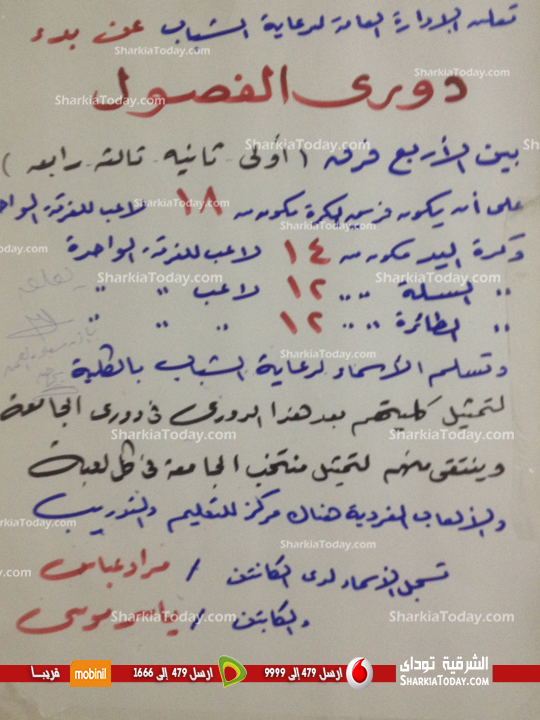 تعلن الإدارة العامة لرعاية الشباب عن بدء
دورى الفصول
بين الأربع فرق (أولى - ثانيه - ثالثه - رابعه)
على أن يكون فريق الكرة مكون من ١٨ لاعب للفرقة الواحدة
وكرة اليد مكون من ١٤ لاعب للفرقة الواحدة
،، السلة ،، ،، ١٢ لاعب ،، ،،
،، الطائرة ،، ،، ١٢ ،، ،، ،،
وتسلم الأسماء لرعاية الشباب بالكلية
لتمثيل كليتهم بعد هذا الدورى فى دورى الجامعة
وينتقى منهم لتمثيل منتخب الجامعة فى كل لعبة
والألعاب الفردية هناك مركز للتعليم والتدريب
تسجل الأسماء لدى الكابتن / مراد عباس
والكابتن / ياسر موسى
SharkiaToday.com
الشرقية توداى
SHARKIATODAY.COM
ارسل 479 إلى 9999
ارسل 479 إلى 1666
mobinil
قريبا